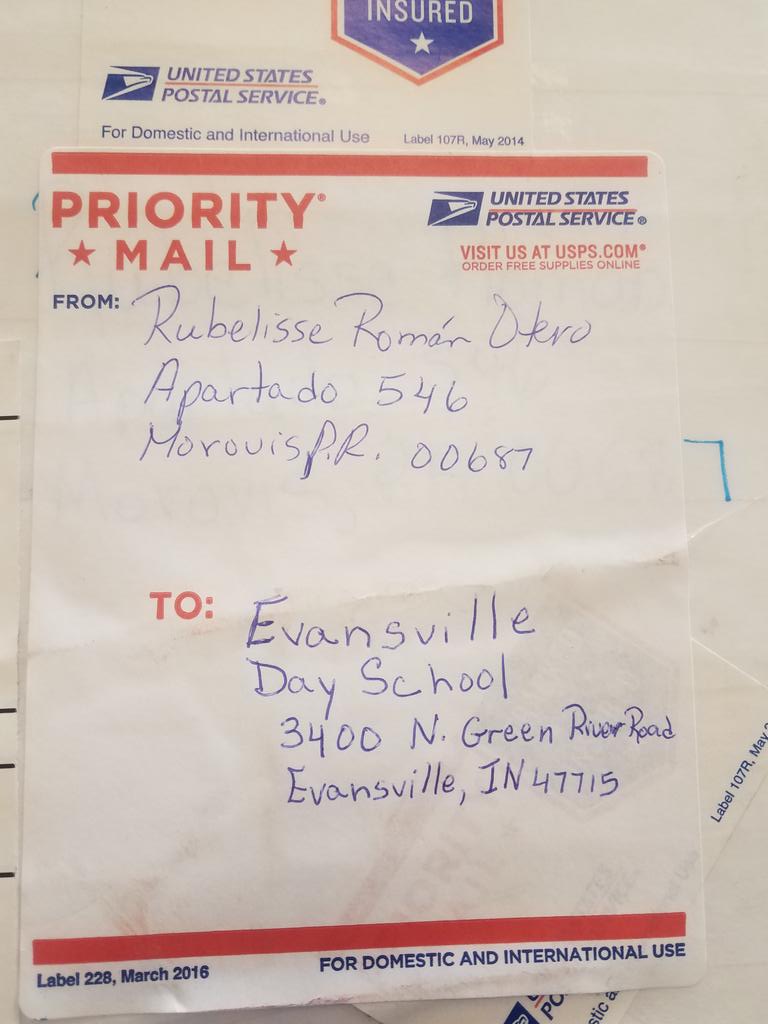 INSURED
UNITED STATES
POSTAL SERVICE®
For Domestic and International Use Label 107R, May 2014
PRIORITY®
★ MAIL ★
UNITED STATES
POSTAL SERVICE®
VISIT US AT USPS.COM®
ORDER FREE SUPPLIES ONLINE
FROM: Rubelisse Román Otero
Apartado 546
Morovis, P.R. 00687
TO: Evansville
Day School
3400 N. Green River Road
Evansville, IN 47715
Label 107R, May
Label 228, March 2016 FOR DOMESTIC AND INTERNATIONAL USE